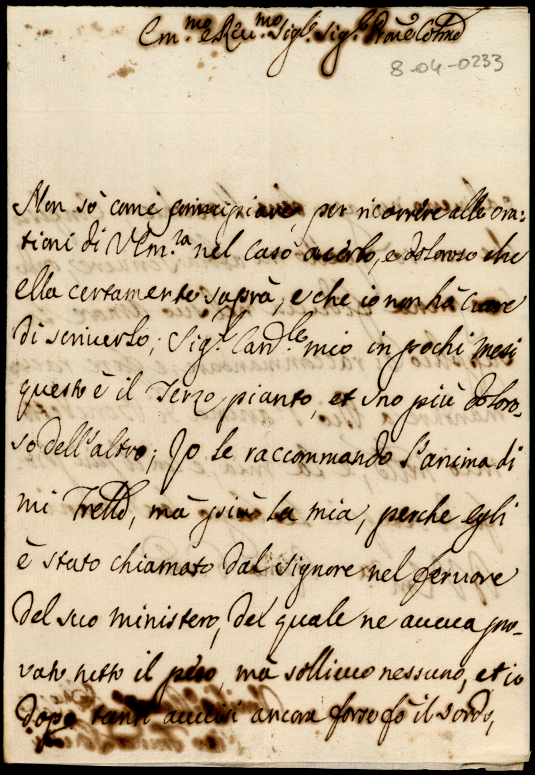 Em.mo e Rev.mo Sig.e Sig.e Prone Colmo
8-04-0233
Non sò come principiare, per ricorrere alle ora:
tioni di V. Em.za nel caso acerbo, e doloroso che
ella certamente saprà, e che io non hà cuore
di scriverlo; Sig.e Card.le mio in pochi mesi
questo è il Terzo pianto, et uno più doloro-
so dell'altro; Jo le raccommando l'anima di
mi frello, mà più la mia, perche egli
è stato chiamato dal Signore nel fervore
del suo ministero, del quale ne aveva pro-
vato tutto il peso, mà sollievo nessuno, et io
dopo tanti avvisi ancora forse fò il sordo,